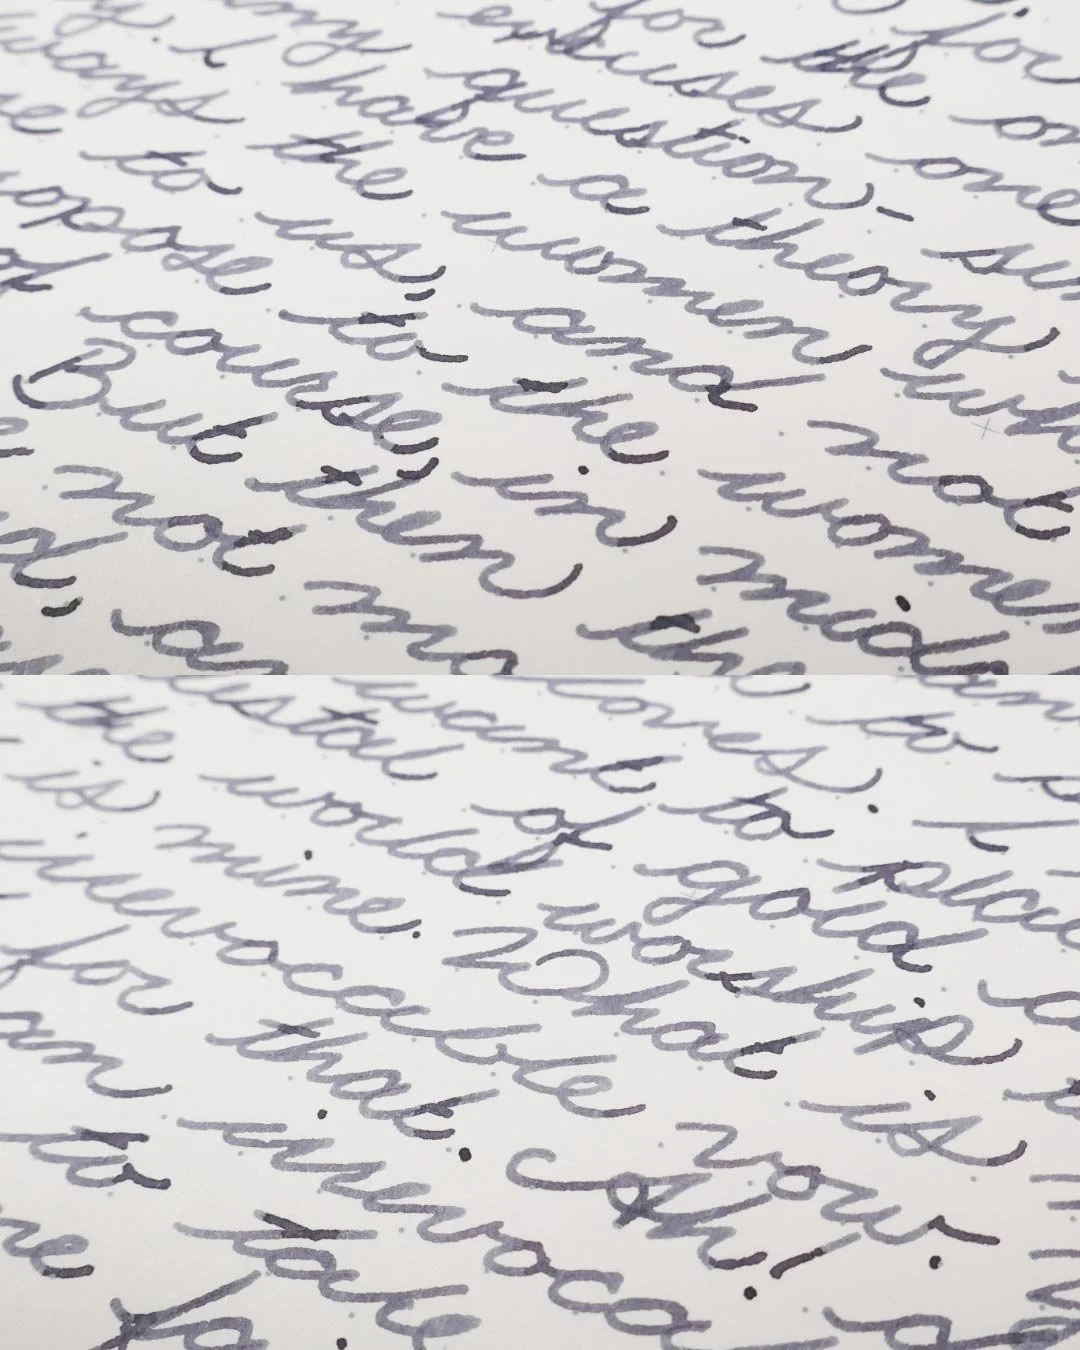 for
for the on
excuses one
any question- se
I have a theory
ways the women wh
to us, and not
oppose to the women
of course, in mid
But then the
not mo
d, an
to s
loves I
want to plac
estal of gold a
the world worship
is mine. What is
irrevocable vow.
for that. Ah!
an irrevoca
to take